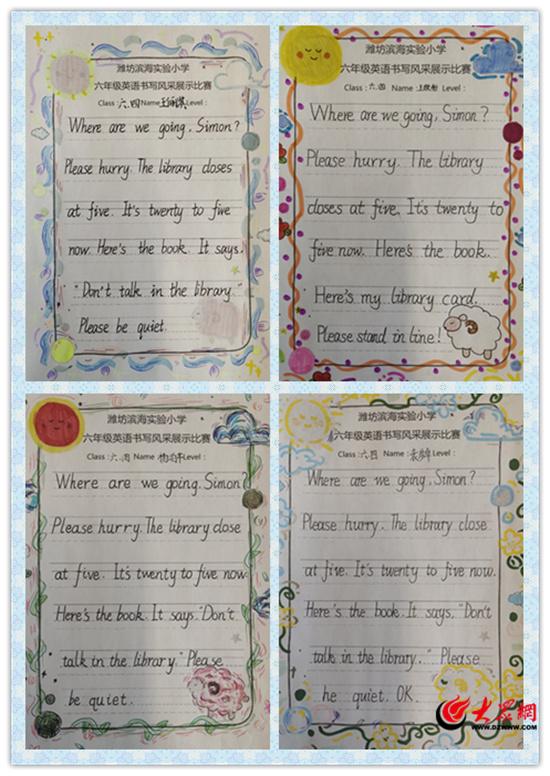 潍坊滨海实验小学
六年级英语书写风采展示比赛
Class : 六.四 Name : Level :
Where are we going, Simon?
Please hurry. The library closes
at five. It's twenty to five
now. Here's the book. It says,
"Don't talk in the library."
Please be quiet.
潍坊滨海实验小学
六年级英语书写风采展示比赛
Class : 六.四 Name : Level :
Where are we going, Simon?
Please hurry. The library
closes at five. It's twenty to
five now. Here's the book.
Here's my library card.
Please stand in line!
潍坊滨海实验小学
六年级英语书写风采展示比赛
Class : 六.四 Name Level :
Where are we going. Simon
Please hurry. The library close
at five. It's twenty to five now.
Here's the book. It says. "Don't
talk in the library." Please
be quiet.
潍坊滨海实验小学
六年级英语书写风采展示比赛
Class : 六四 Name : Level :
Where are we going, Simon?
Please hurry. The library close
at five. It's twenty to five now.
Here's the book. It says, "Don't
talk in the library." Please
he quiet. OK.
大众网
WWW.DZWWW.COM